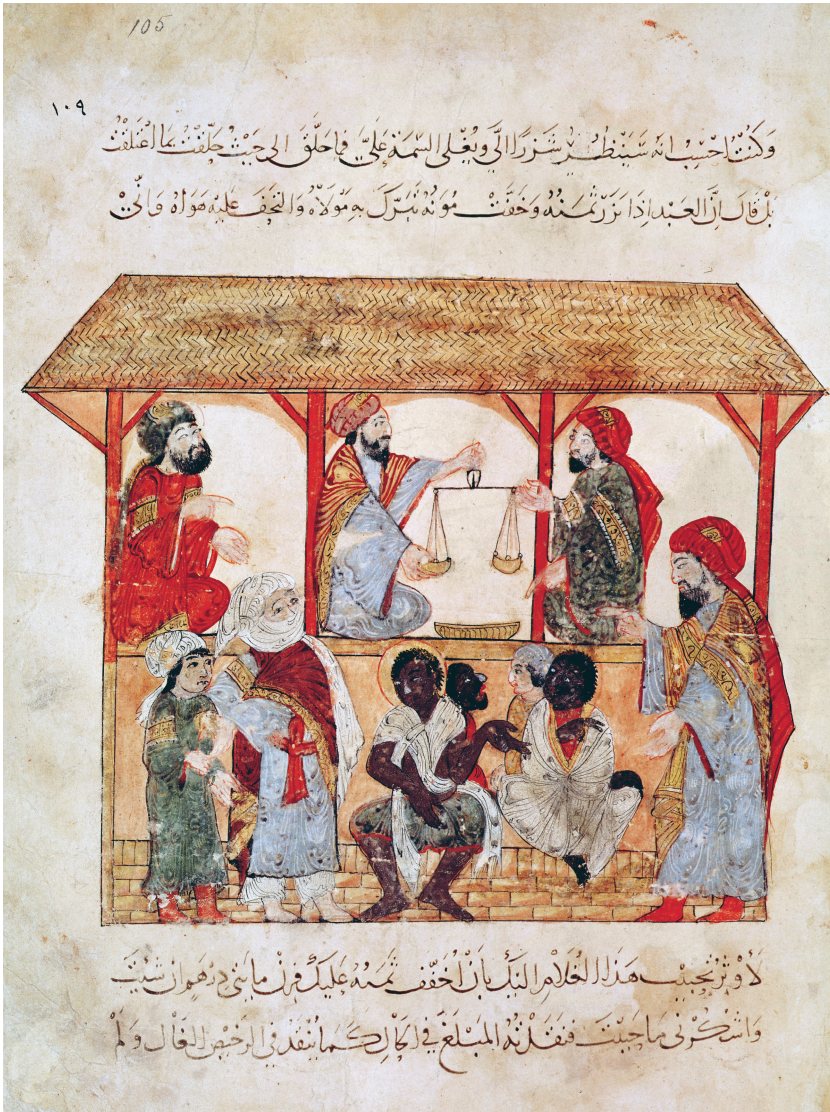 105
١٠٩
وَكُنْتُ احْسِبُ انه سَيَنْظُرُ شَزَرًا الَيَّ وَيُغْلي السِّمَةَ عَلَيَّ فما حَلَّقَ الى حَيْثُ حَلَّقْتُ بما اعْتَلَقْتُ
بَلْ قَالَ اِنَّ العَبْدَ اِذَا نَزَرَ ثَمَنُهُ وَخَفَّتْ مُوَنُهُ تَبَرَّكَ بِهِ مَوْلَاهُ وَالتحَفَ عَلَيْهِ هَوَاهُ وَانِّيْ
لَأُوثِرُ تحبيبَ هَذَا الغُلَامِ اليْكَ بِأَنْ اُخَفِّفَ ثَمَنَهُ عَلَيْكَ فَزِنْ مايتي دِرْهَمٍ ان شِيْتَ
وَاشْكُرْنِي مَا حَيِيْتَ فنَقَدْتُهُ المَبْلَغَ في الحَالِ كَمَا يُنْقَدُ في الرَّخِيْصِ الغَالِ وَلَمْ